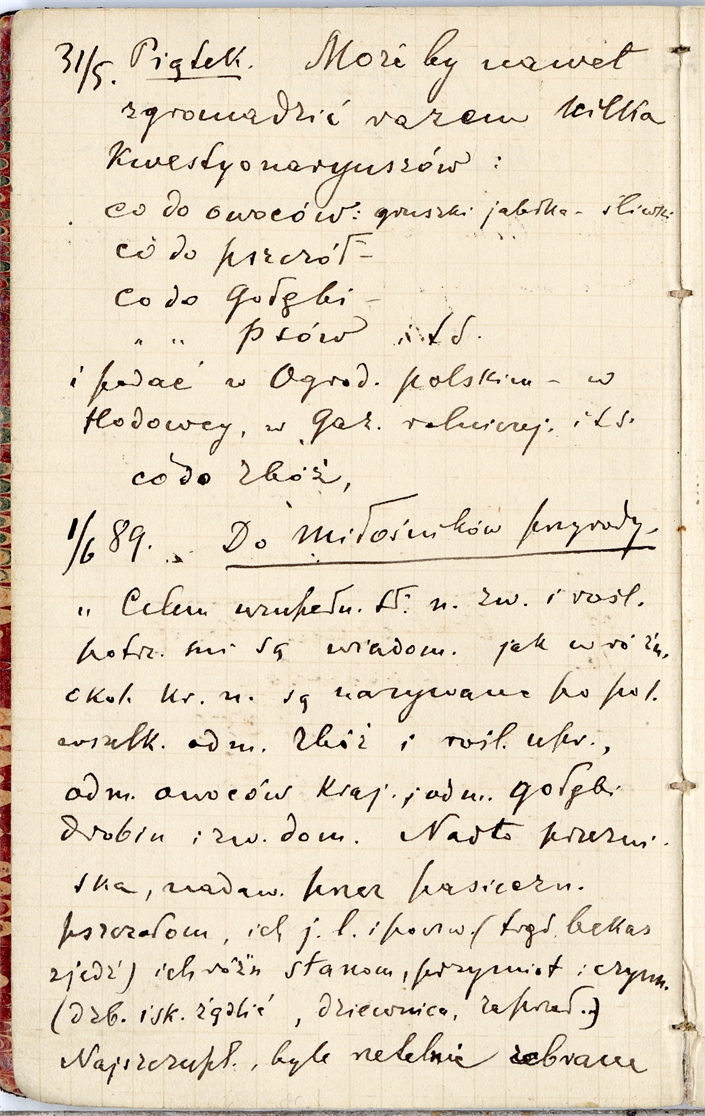 31/5. Piątek. Może by nawet
zgromadzić razem kilka
Kwestyonaryuszów :
co do owoców: gruszki jabłka - śliwki
co do pszczół -
co do gołębi -
" " psów i t d.
i podać w Ogrod. polskim - w
Hodowcy, w Gaz. rolniczej. i t d.
co do zbóż,
1/6 89. Do miłośników przyrody.
" Celem uzupełn. sł. n. zw. i rośl.
potrz. mi są wiadom. jak w różn.
okol. kr. n. są nazywane po pol.
wszelk. odm. zbóż i rośl. upr.,
odm. owoców kraj. i odm. gołębi
drobiu i zw. dom. Nadto przezwi-
ska, nadaw. przez pasieczn.
pszczołom, ich j. l. i porów. (trąd, bękas
zjedź) ich różn stanom, przymiot i czynn.
(dzb. isk. żądlić, dziewnica, zaprzad..)
Najszczupł., byle rzetelnie zebrane